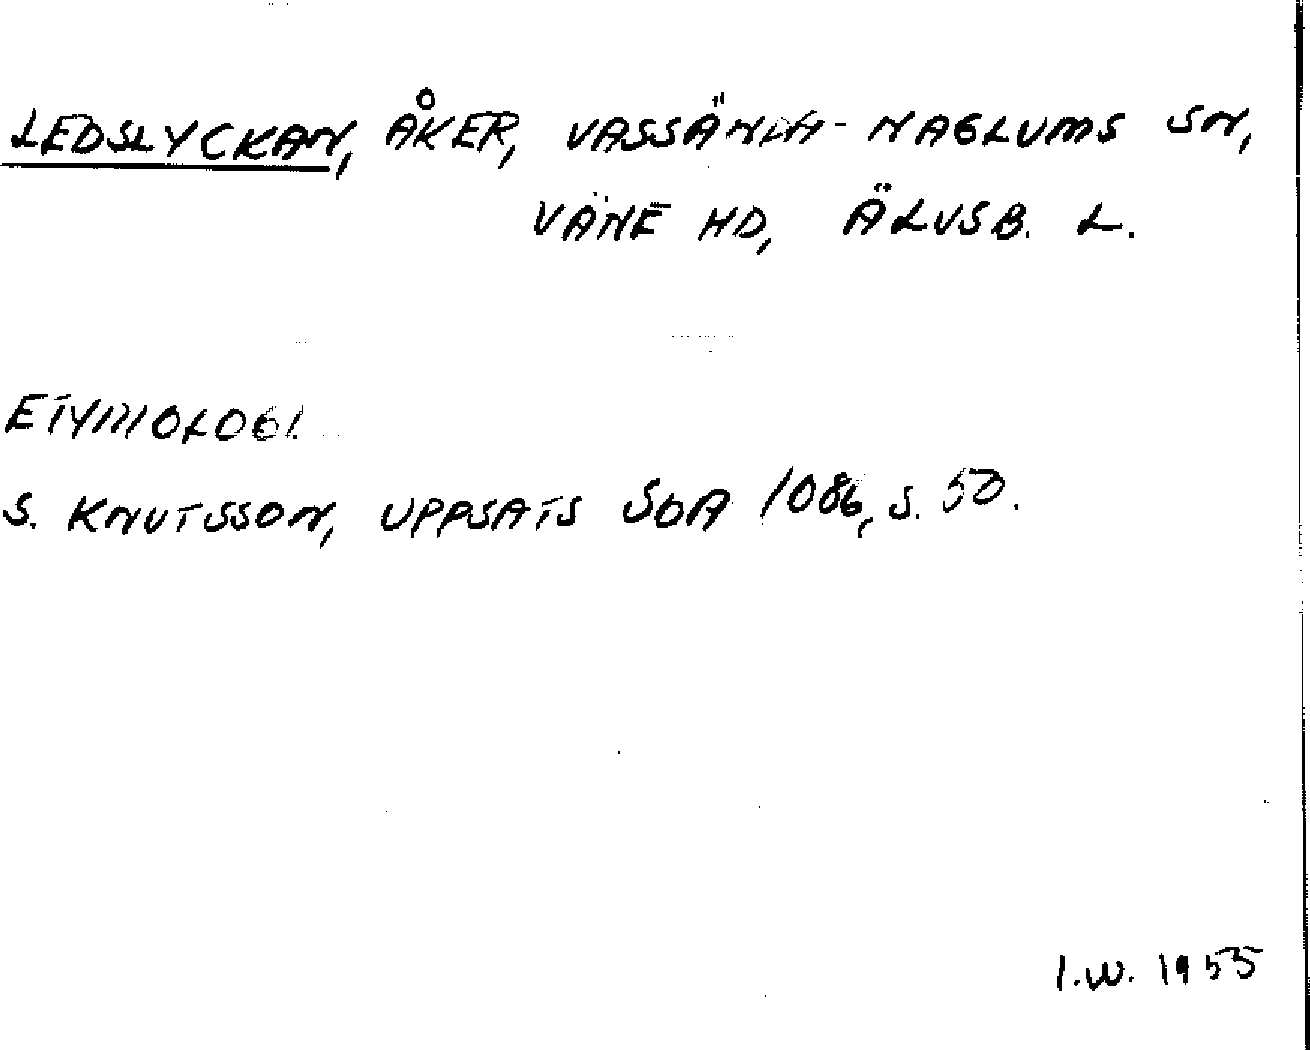 LEDSLYCKAN, ÅKER, VASSÄNDA-NAGLUMS SN,
VÄNE HD, ÄLVSB. L.
ETYMOLOGI.
S. KNUTSSON, UPPSATS SOA 1086, S. 50.
I.W. 1955